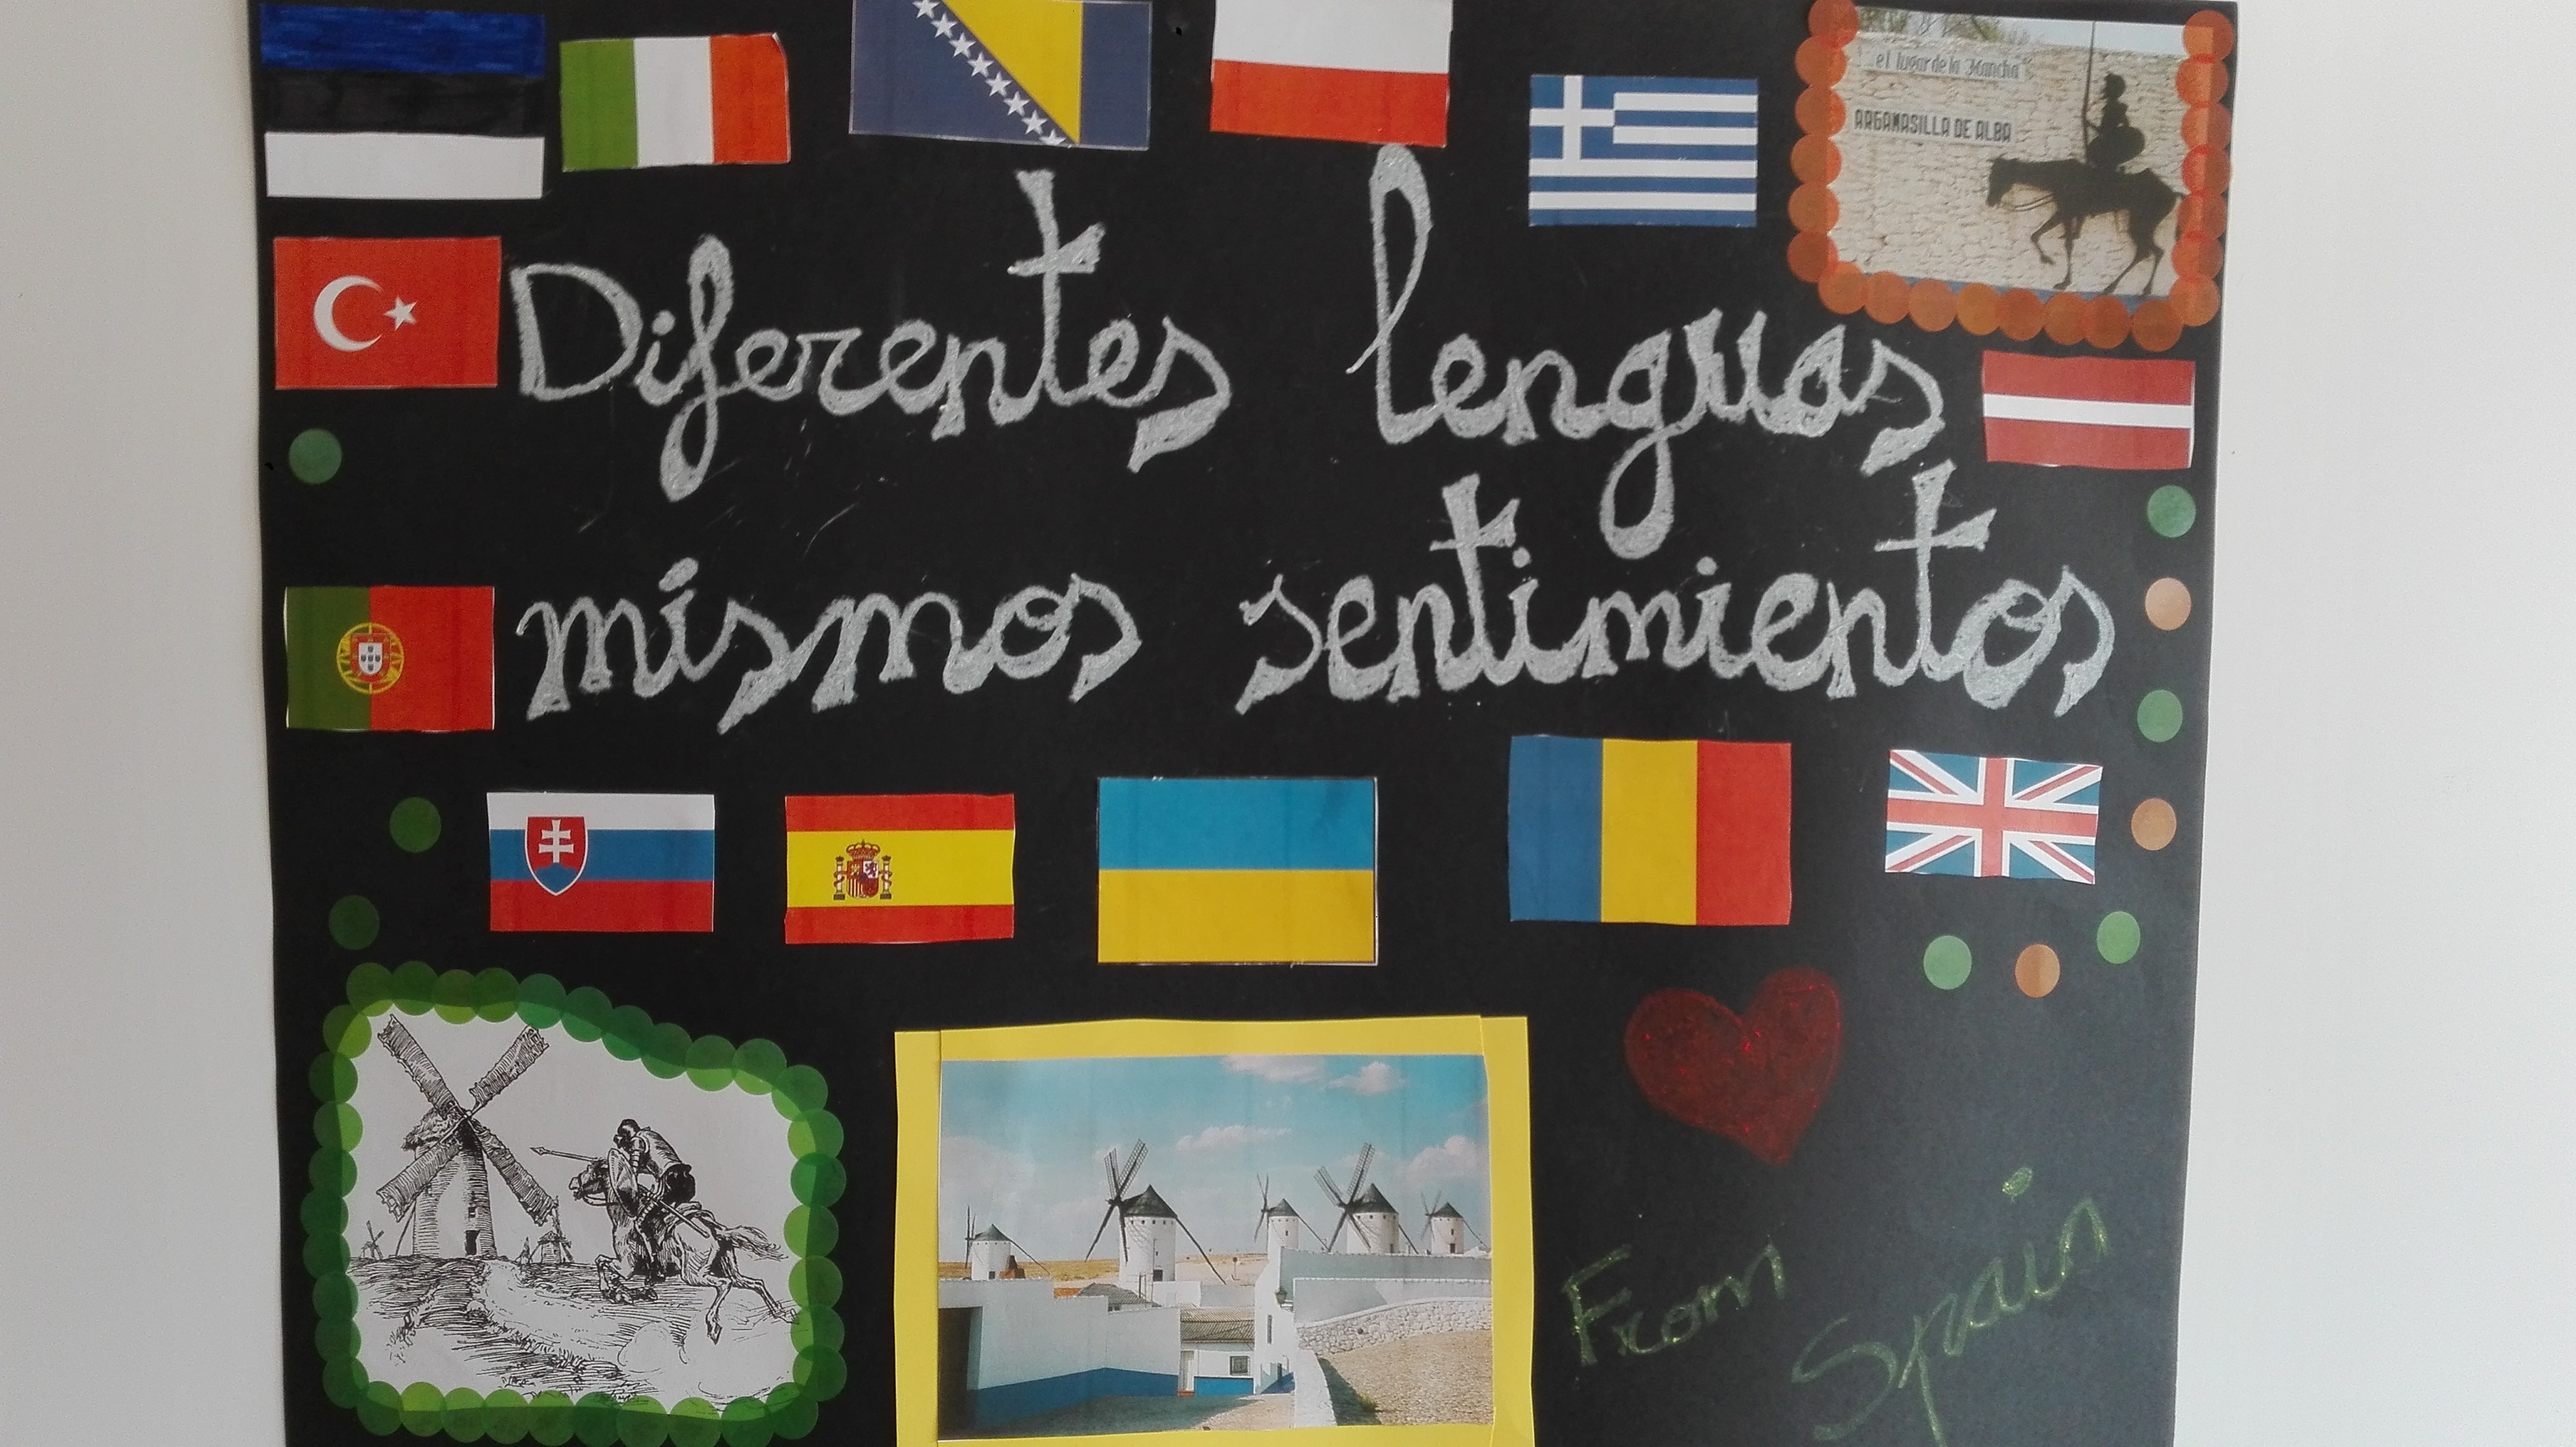 el lugar de la Mancha"
ARGAMASILLA DE ALBA
Diferentes lenguas
mismos sentimientos
From
Spain